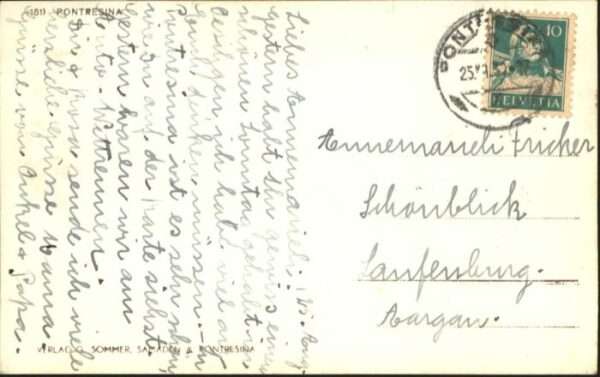 1511 PONTRESINA
Liebes Annemarieli.
gestern habt Ihr gewiss einen
schönen Sonntag gehabt.
ich hab viel an
Euch denken müssen. – In
Pontresina ist es sehr schön
wie Du auf der Karte siehst.
Gestern waren wir am
Auto-Wettrennen.
Dir & Rosa sende ich viele
herzliche Grüsse Mama
Grüsse von Onkel & Papa.
VERLAG O. SOMMER, SAMADEN & PONTRESINA
PONTRESINA
25.
10
HELVETIA
Annemarieli Fricker
Schönblick
Laufenburg.
Aargau.